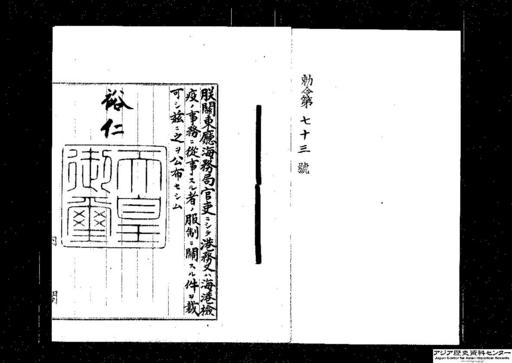 勅令第七十三號
朕關東廳海務局官吏ニシテ港務又ハ海港檢
疫ノ事務ニ從事スル者ノ服制ニ關スル件ヲ裁
可シ茲ニ之ヲ公布セシム
裕仁
天皇
御璽
アジア歴史資料センター
Japan Center for Asian Historical Records